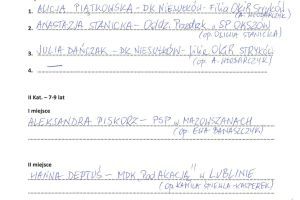 1. ALICJA PIĄTKOWSKA - DK NIESUŁKÓW - Filia OKiR Stryków
(op. A. WŁODARCZYK)
2. ANASTAZJA STANICKA - Oddz. Przedszk. w SP OKSZÓW
(op. OLICHA STANICKA)
3. JULIA DAŃCZAK - DK NIESUŁKÓW - filia OKiR STRYKÓW
(op. A. WŁODARCZYK)
4. —
II Kat. – 7-9 lat
I miejsce
ALEKSANDRA PISKORZ - PSP w MAZOWSZANACH
(op. EWA BANASZCZYK)
II miejsce
HANNA DEPTUŚ - MDK „Pod AKACJĄ" w LUBLINIE
(op. KAMILA